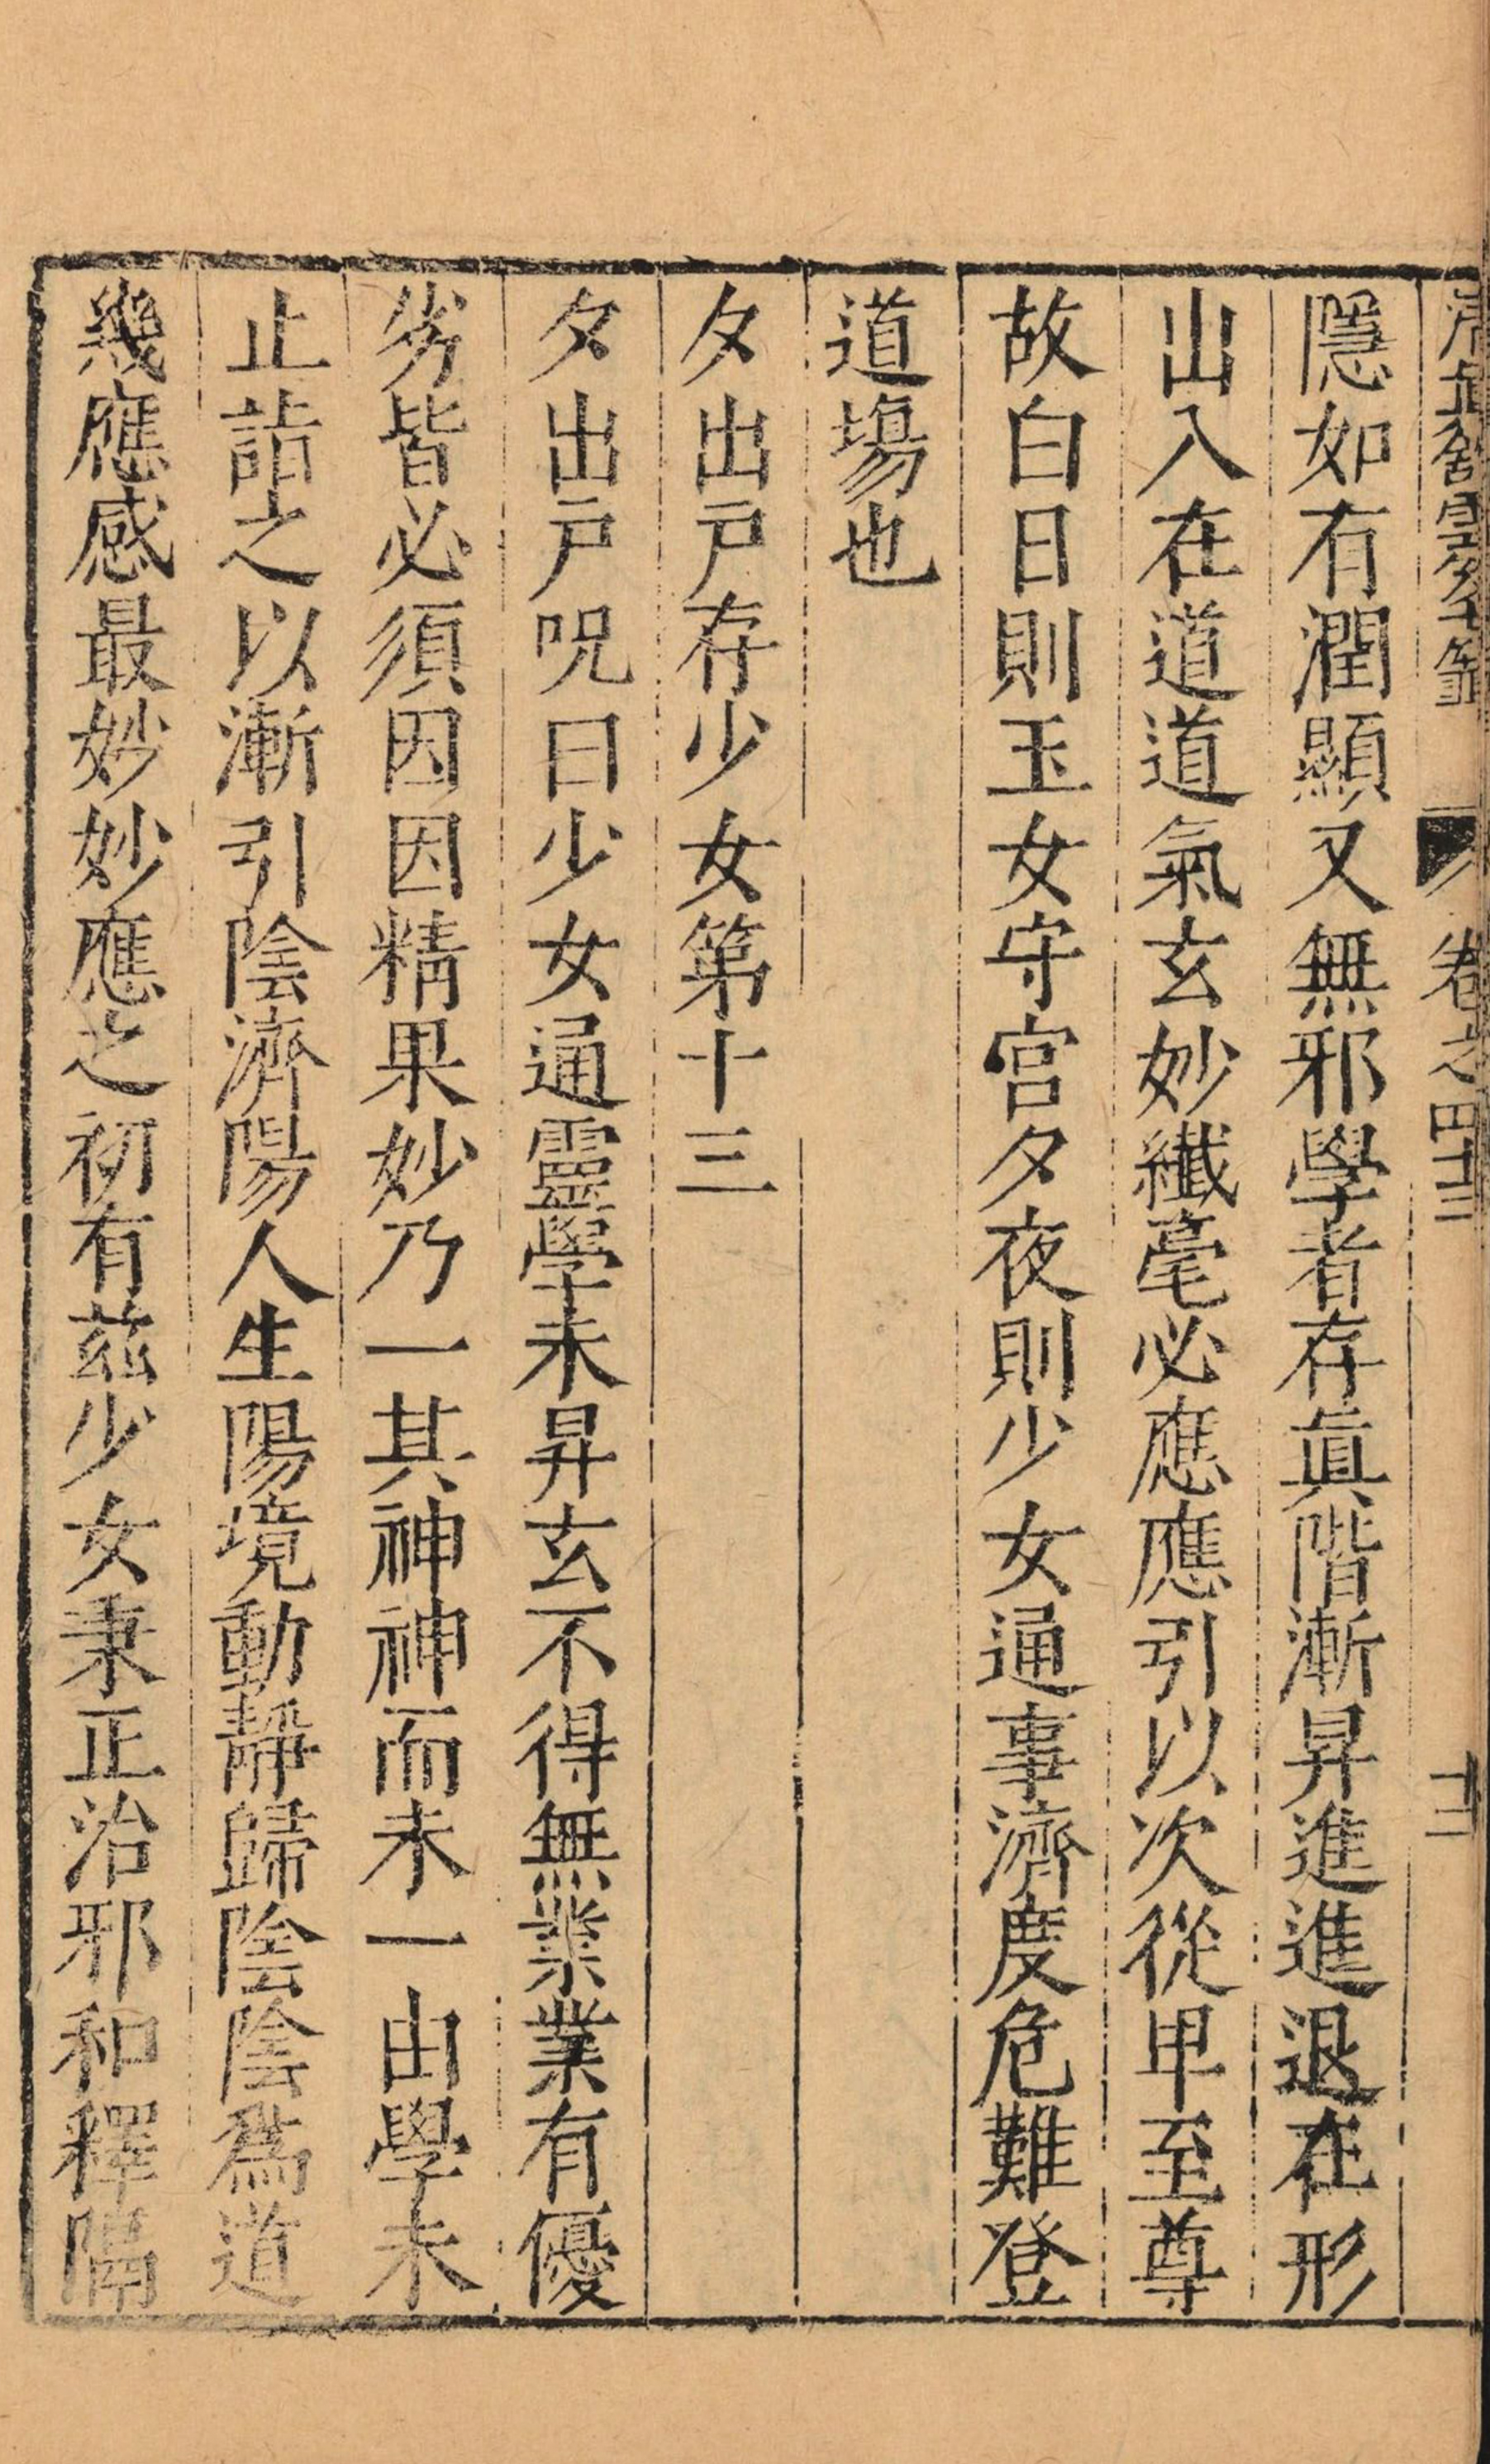 清眞舘雲笈七籤 卷之四十三 十二
隱如有潤顯又無邪學者存眞階漸昇進進退在形
出入在道道氣玄妙纖毫必應應引以次從卑至尊
故白日則玉女守宮夕夜則少女通事濟度危難登
道塲也
夕出戸存少女第十三
夕出戸呪曰少女通靈學未昇玄不得無業業有優
劣皆必須因因精果妙乃一其神神而未一由學未
止詣之以漸引陰濟陽人生陽境動靜歸陰陰爲道
幾應感最妙妙應之初有茲少女秉正治邪和釋隔